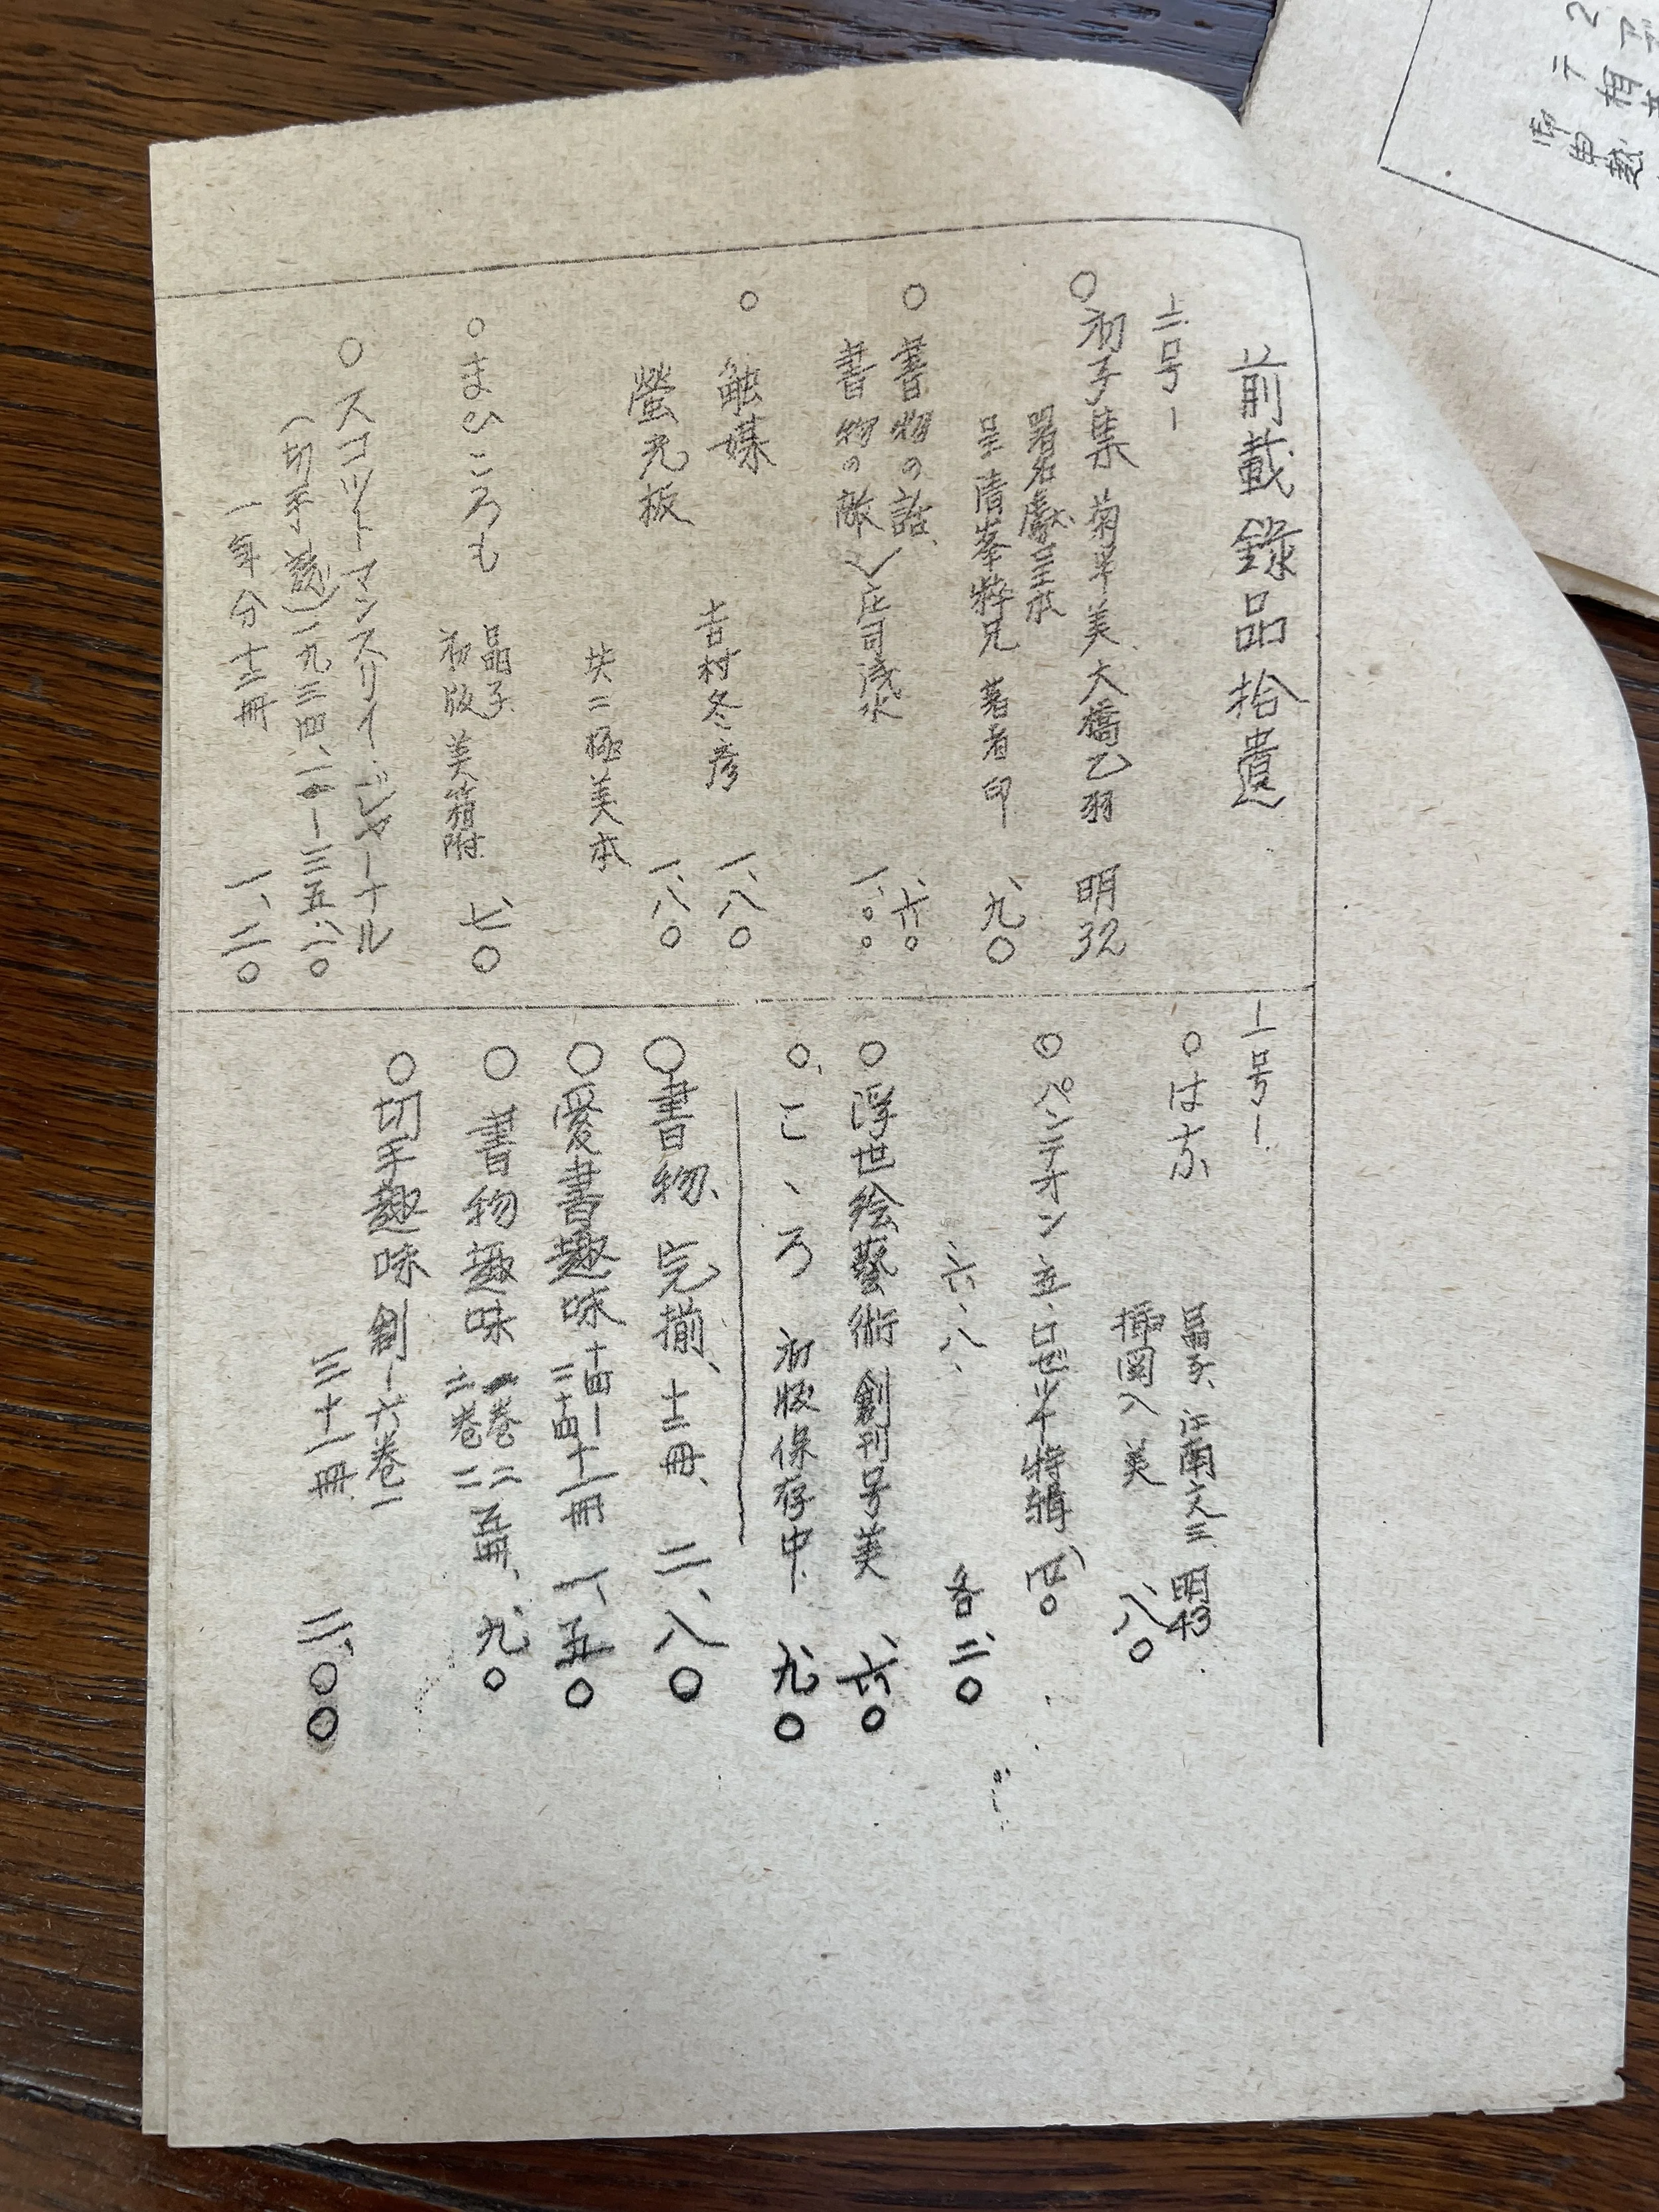 前載錄品拾遺
二号ー
○初子集 菊半美 大橋乙羽 明32
署名獻呈本
呈清峯粹兄 著者印 、九〇
○書物の話、 、六〇
書物の敵 庄司淺水 一、〇〇
○触媒 吉村冬彦 一、八〇
螢光板 一、八〇
共ニ極美本
○まひころも 晶子
初版 美箱附 、七〇
○スコットマンスリイ・ジャーナル
(切手誌)一九三四、二ー三五、二〇
一年分 十二冊 一、二〇
一号ー
○はな 江南文三 明43
挿図入 美 、八〇
○パンテオン 五、ロゼッ半特輯 、四〇
六、八、 各、二〇
○浮世絵藝術 創刊号美 、六〇
○こゝろ 初版保存中 、九〇
○書物、完揃、十二冊、 二、八〇
○愛書趣味 十四ー二十四 十一冊 一、五〇
○書物趣味 一巻二
二巻二 五冊、 、九〇
○切手趣味 創ー六巻一
三十一冊 二、〇〇
2
テ